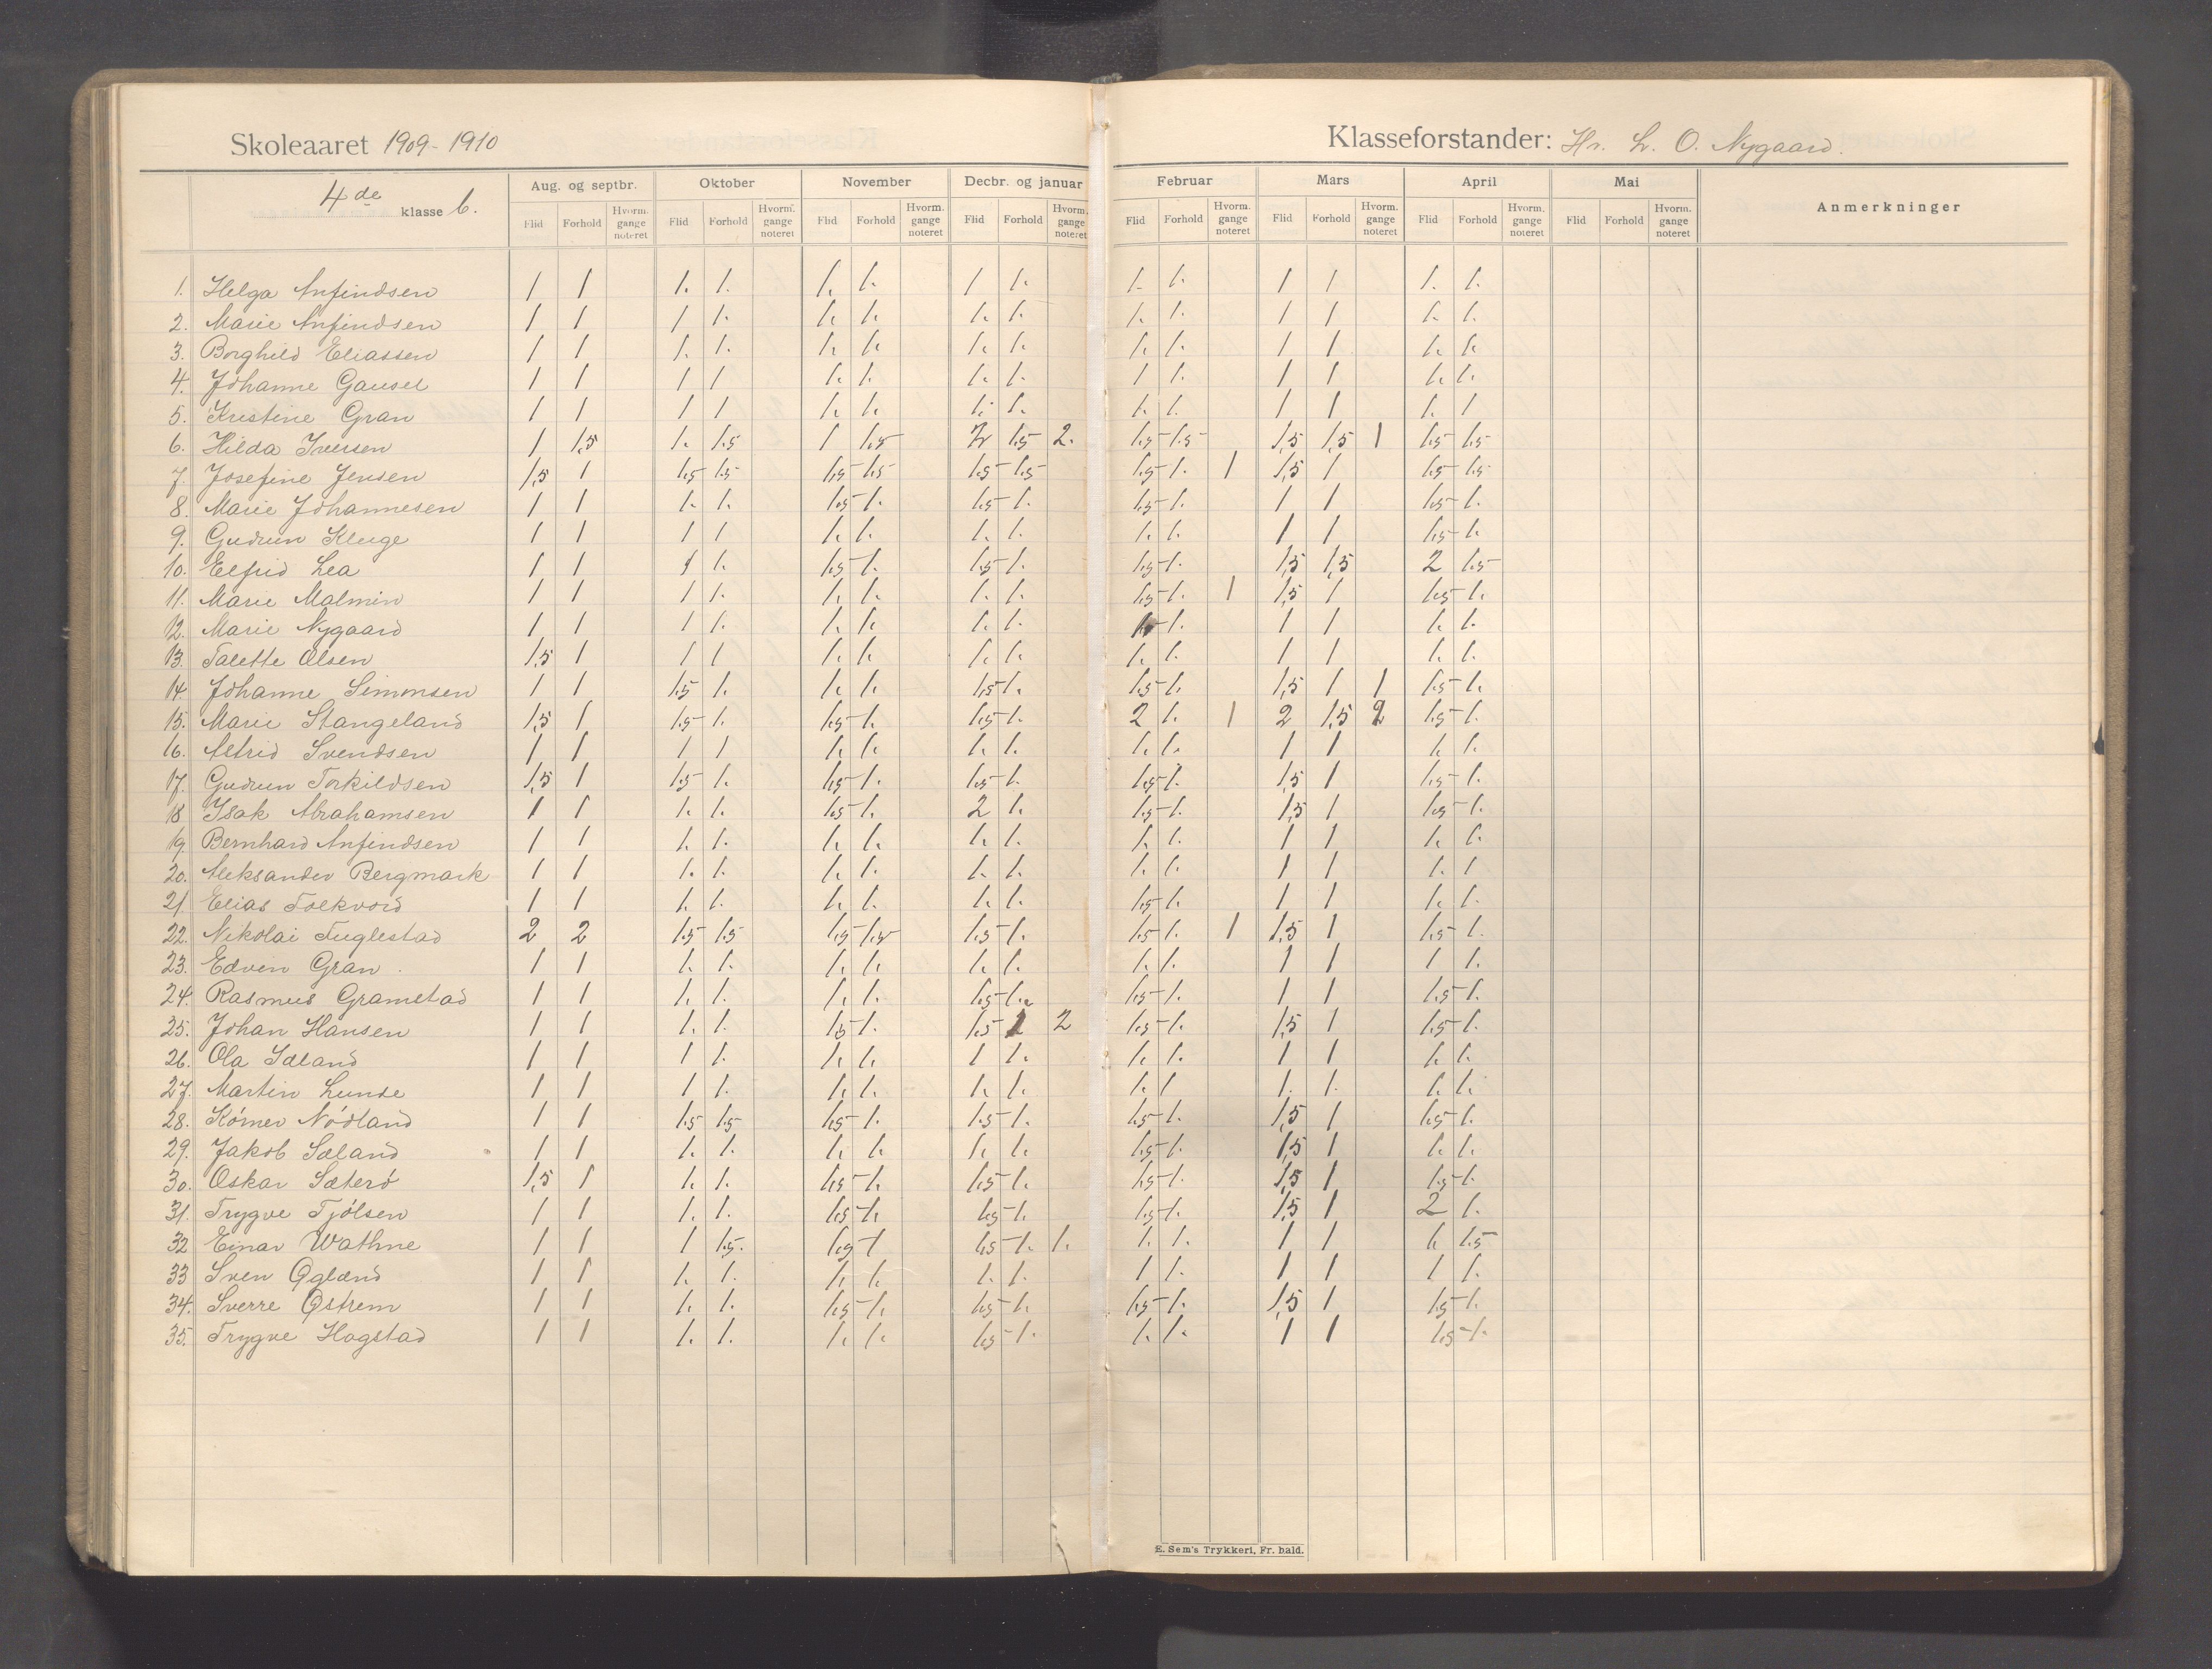 Skoleaaret 1909-1910
Klasseforstander: Hr. L. O. Nygaard.
4de klasse b.
Aug. og septbr. Oktober November Decbr. og januar Februar Mars April Mai Anmerkninger
Flid Forhold Hvorm. gange noteret Flid Forhold Hvorm. gange noteret Flid Forhold Hvorm. gange noteret Flid Forhold Hvorm. gange noteret Flid Forhold Hvorm. gange noteret Flid Forhold Hvorm. gange noteret Flid Forhold Hvorm. gange noteret Flid Forhold Hvorm. gange noteret
1. Helga Anfindsen 1 1 1. 1. 1. 1. 1 1. 1. 1. 1 1 1. 1.
2. Marie Anfindsen 1 1 1 1. 1. 1. 1. 1. 1. 1. 1 1 1. 1.
3. Borghild Eliassen 1 1 1. 1. 1. 1. 1. 1. 1. 1. 1 1 1. 1.
4. Johanne Gausel 1 1 1 1 1. 1. 1. 1. 1 1. 1 1 1. 1.
5. Kristine Gran 1 1 1 1 1. 1. 1. 1. 1. 1. 1 1 1. 1
6. Hilda Iversen 1 1,5 1. 1.5 1 1.5 2 1.5 2. 1.5 1.5 1,5 1,5 1 1.5 1.5
7. Josefine Jensen 1,5 1 1.5 1.5 1.5 1.5 1.5 1.5 1.5 1. 1 1,5 1 1.5 1.5
8. Marie Johannesen 1 1 1. 1. 1.5 1. 1.5 1. 1.5 1. 1 1 1.5 1.
9. Gudrun Kluge 1 1 1 1 1. 1. 1. 1. 1. 1. 1 1 1.5 1.
10. Elfrid Lea 1 1 1 1. 1.5 1. 1.5 1. 1.5 1. 1,5 1,5 2 1.5
11. Marie Malmin 1 1 1 1. 1. 1. 1. 1. 1.5 1. 1 1,5 1 1.5 1.
12. Marie Nygaard 1 1 1 1. 1. 1. 1. 1. 1. 1 1 1. 1.
13. Talette Olsen 1,5 1 1 1 1. 1. 1. 1. 1. 1. 1 1 1. 1.
14. Johanne Simonsen 1 1 1.5 1. 1. 1. 1.5 1. 1.5 1. 1,5 1 1 1.5 1.
15. Marie Stangeland 1,5 1 1.5 1. 1.5 1. 1.5 1. 2 1. 1 2 1,5 2 1.5 1.
16. Astrid Svendsen 1 1 1 1 1. 1. 1. 1. 1. 1. 1 1 1. 1.
17. Gudrun Torkildsen 1,5 1 1.5 1. 1.5 1. 1.5 1. 1.5 1. 1,5 1 1.5 1.
18 Isak Abrahamsen 1 1 1. 1. 1.5 1. 2 1. 1.5 1. 1,5 1 1.5 1.
19. Bernhard Anfindsen 1 1 1. 1. 1. 1. 1. 1. 1. 1. 1 1 1. 1.
20. Aleksander Bergmark 1 1 1. 1. 1. 1. 1. 1. 1. 1. 1 1 1. 1
21. Elias Folkvord 1 1 1. 1. 1. 1. 1. 1. 1.5 1. 1 1 1. 1.
22. Nikolai Fuglestad 2 2 1.5 1.5 1.5 1.5 1.5 1. 1.5 1. 1 1,5 1 1.5 1.
23. Edvin Gran. 1 1 1. 1. 1. 1. 1. 1. 1. 1. 1 1 1 1.
24. Rasmus Gramstad 1 1 1. 1. 1. 1. 1.5 1. 1.5 1. 1 1 1.5 1.
25. Johan Hansen 1 1 1. 1. 1.5 1. 1.5 2 1.5 1. 1,5 1 1.5 1.
26. Ola Sæland 1 1 1 1. 1. 1. 1 1. 1. 1. 1 1 1. 1.
27. Martin Lunde 1 1 1 1. 1. 1. 1. 1. 1. 1 1. 1. 1. 1.
28. Kórner Nódland 1 1 1.5 1.5 1.5 1. 1.5 1. 1.5 1. 1,5 1 1.5 1.
29. Jakob Sæland 1 1 1. 1. 1. 1. 1. 1. 1.5 1. 1,5 1 1. 1.
30. Oskar Sæteró 1,5 1 1. 1. 1.5 1. 1.5 1. 1.5 1. 1,5 1 1.5 1.
31. Trygve Tjólsen 1 1 1. 1. 1.5 1. 1.5 1. 1.5 1. 1,5 1 2 1.
32 Einar Wathne 1 1 1 1.5. 1.5 1 1.5 1. 1. 1. 1. 1 1 1. 1.5
33 Sven Øgland 1 1 1. 1. 1. 1. 1. 1. 1 1. 1 1 1 1.
34. Sverre Østrem 1 1 1. 1. 1.5 1. 1.5 1. 1.5 1. 1,5 1 1.5 1.
35. Trygve Hogstad 1 1 1. 1. 1. 1. 1.5 1. 1. 1. 1 1 1.5 1.
E. Sem's Trykkeri, Fr. hald.